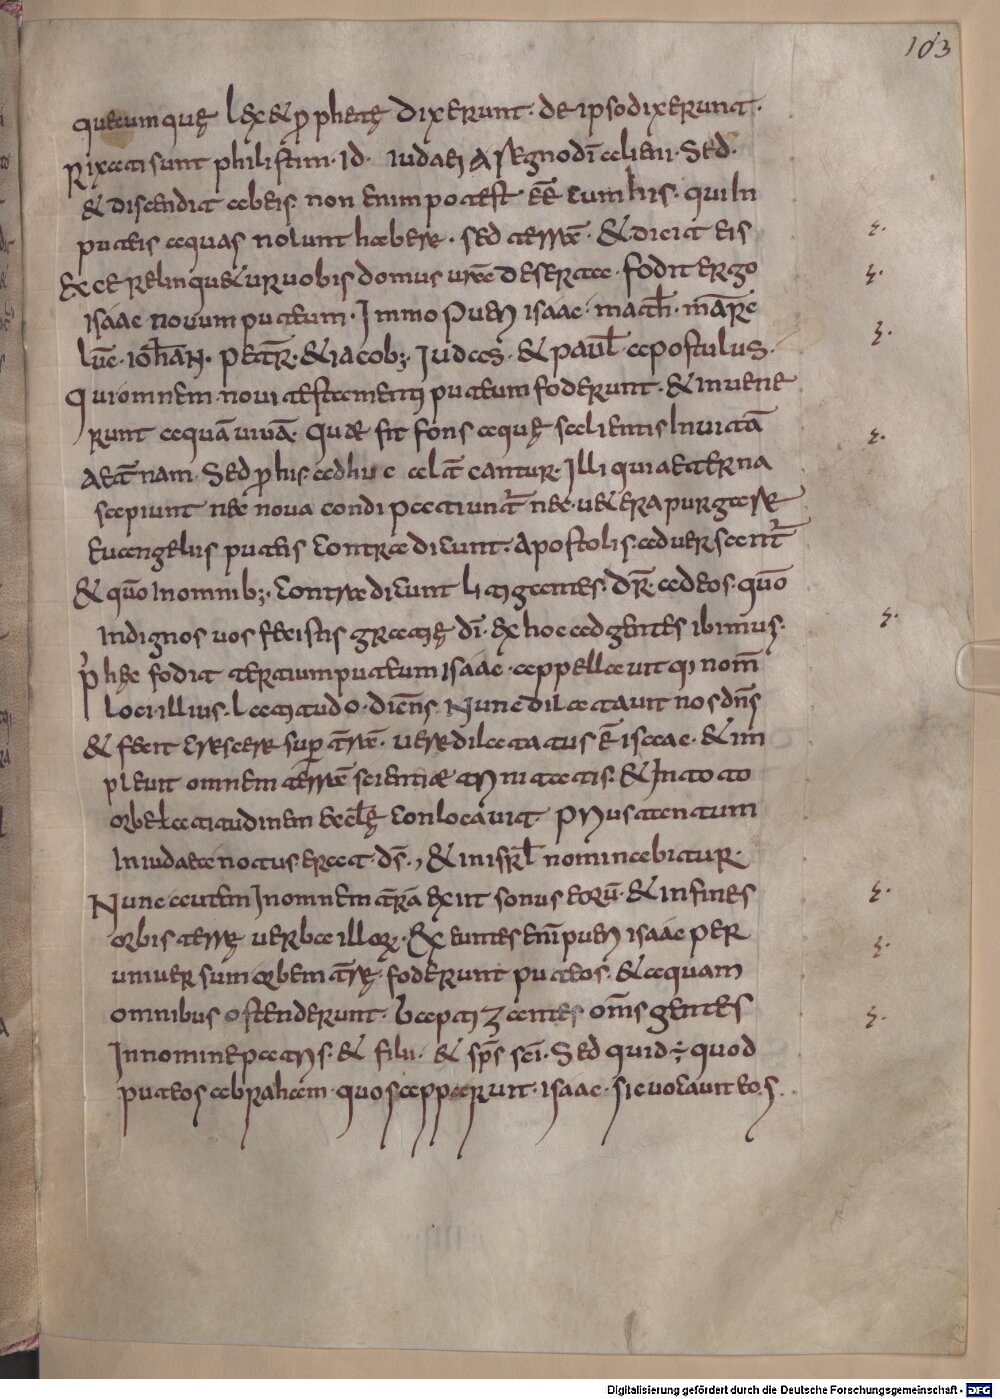 103
quecumquę lex & ꝓphetę dixerunt · de ipso dixerunt ·
Rixati sunt philistim · id · iudaei a regno dī alieni · Sed ·
& discendit ab eis · non enim potest eē cum his · qui in
puteis aquas nolunt habere · sed terrā · & dicit eis
Ecce relinqu&ur uobis domus urā deserta · fodit ergo
isaac nouum puteum · Immo pueri isaac · math · mare
luc · iohan · petr · & iacob; · Iudas · & paul apostulus ·
Qui omnem noui testamenti puteum foderunt · & inuene
runt aquā uiuā · Quæ fit fons aquę salientis In uitā
aetnam · Sed ꝓ his · adhuc altcantur · Illi qui aeterna
sapiunt nec noua condi patiunt nec · u&era purgare
Euangeliis puteis contradicunt · apostolis · aduersant
& quō In omnib; · contradicunt litigantes · dr̄ · ad eos · quō
Indignos uos fecistis gratię dī · ex hoc ad gentes ibimus ·
p̓ hęc fodit tertium puteum isaac · appellauit qi nom̄
loci illius · latitudo · dicens · Nunc dilatauit nos dn̄s
& fecit crescere sup̄ terrā · uere dilatatus ē isaac · & im
pleuit omnem terrā scientiæ trinitatis · & In toto
orbe latitudinem eccl̄ę conlocauit · prius tantum
In iudaea notus erat · ds̄ · , & in isrl̄ nominabitur ·
Nunc autem In omnem t̄rā exiit sonus eorū · & in fines
orbis terrę uerba illoꝝ · Exeuntes eni pueri isaac per
uniuersum orbem t̄rę · foderunt puteos · & aquam
omnibus ostenderunt · baptizantes om̄s gentes
In nomine patris · & filii · & sp̄s sc̄i · Sed quid ÷ quod
puteos abraham · quos apperuit · isaac · sic uocauit eos ·
Digitalisierung gefördert durch die Deutsche Forschungsgemeinschaft - DFG